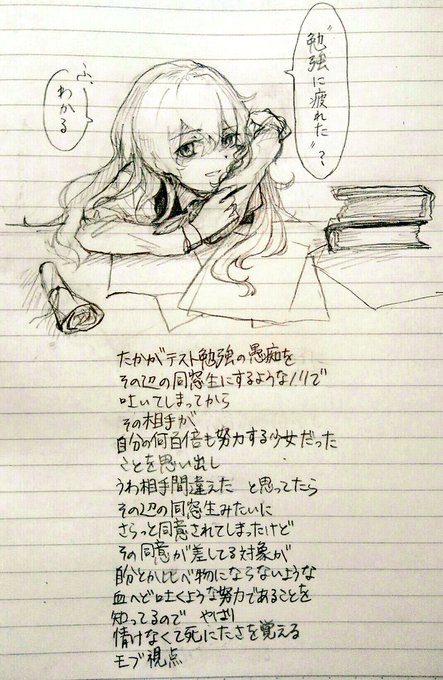 “勉強に疲れた”？
ふ、
わかる
たかがテスト勉強の愚痴を
その辺の同窓生にするようなノリで
吐いてしまってから
その相手が
自分の何百倍も努力する少女だった
ことを思い出し
うわ相手間違えた と思ってたら
その辺の同窓生みたいに
さらっと同意されてしまったけど
その同意が差してる対象が
自分とか比べ物にならないような
血へど吐くような努力であることを
知ってるので やはり
情けなくて死にたさを覚える
モブ視点